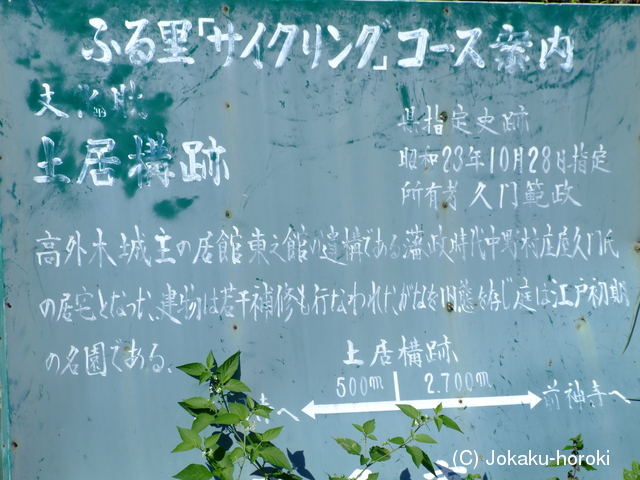 ふる里「サイクリング」コース案内
文化財
土居構跡
県指定史跡
昭和23年10月28日指定
所有者 久門範政
高外木城主の居館東之館の遺構である。藩政時代中野村庄屋久門氏
の居宅となった。建物は若干補修も行なわれたがなを旧態を存し庭は江戸初期
の名園である。
土居構跡
500m 2.700m
寺へ 前神寺へ
(C) Jokaku-horoki